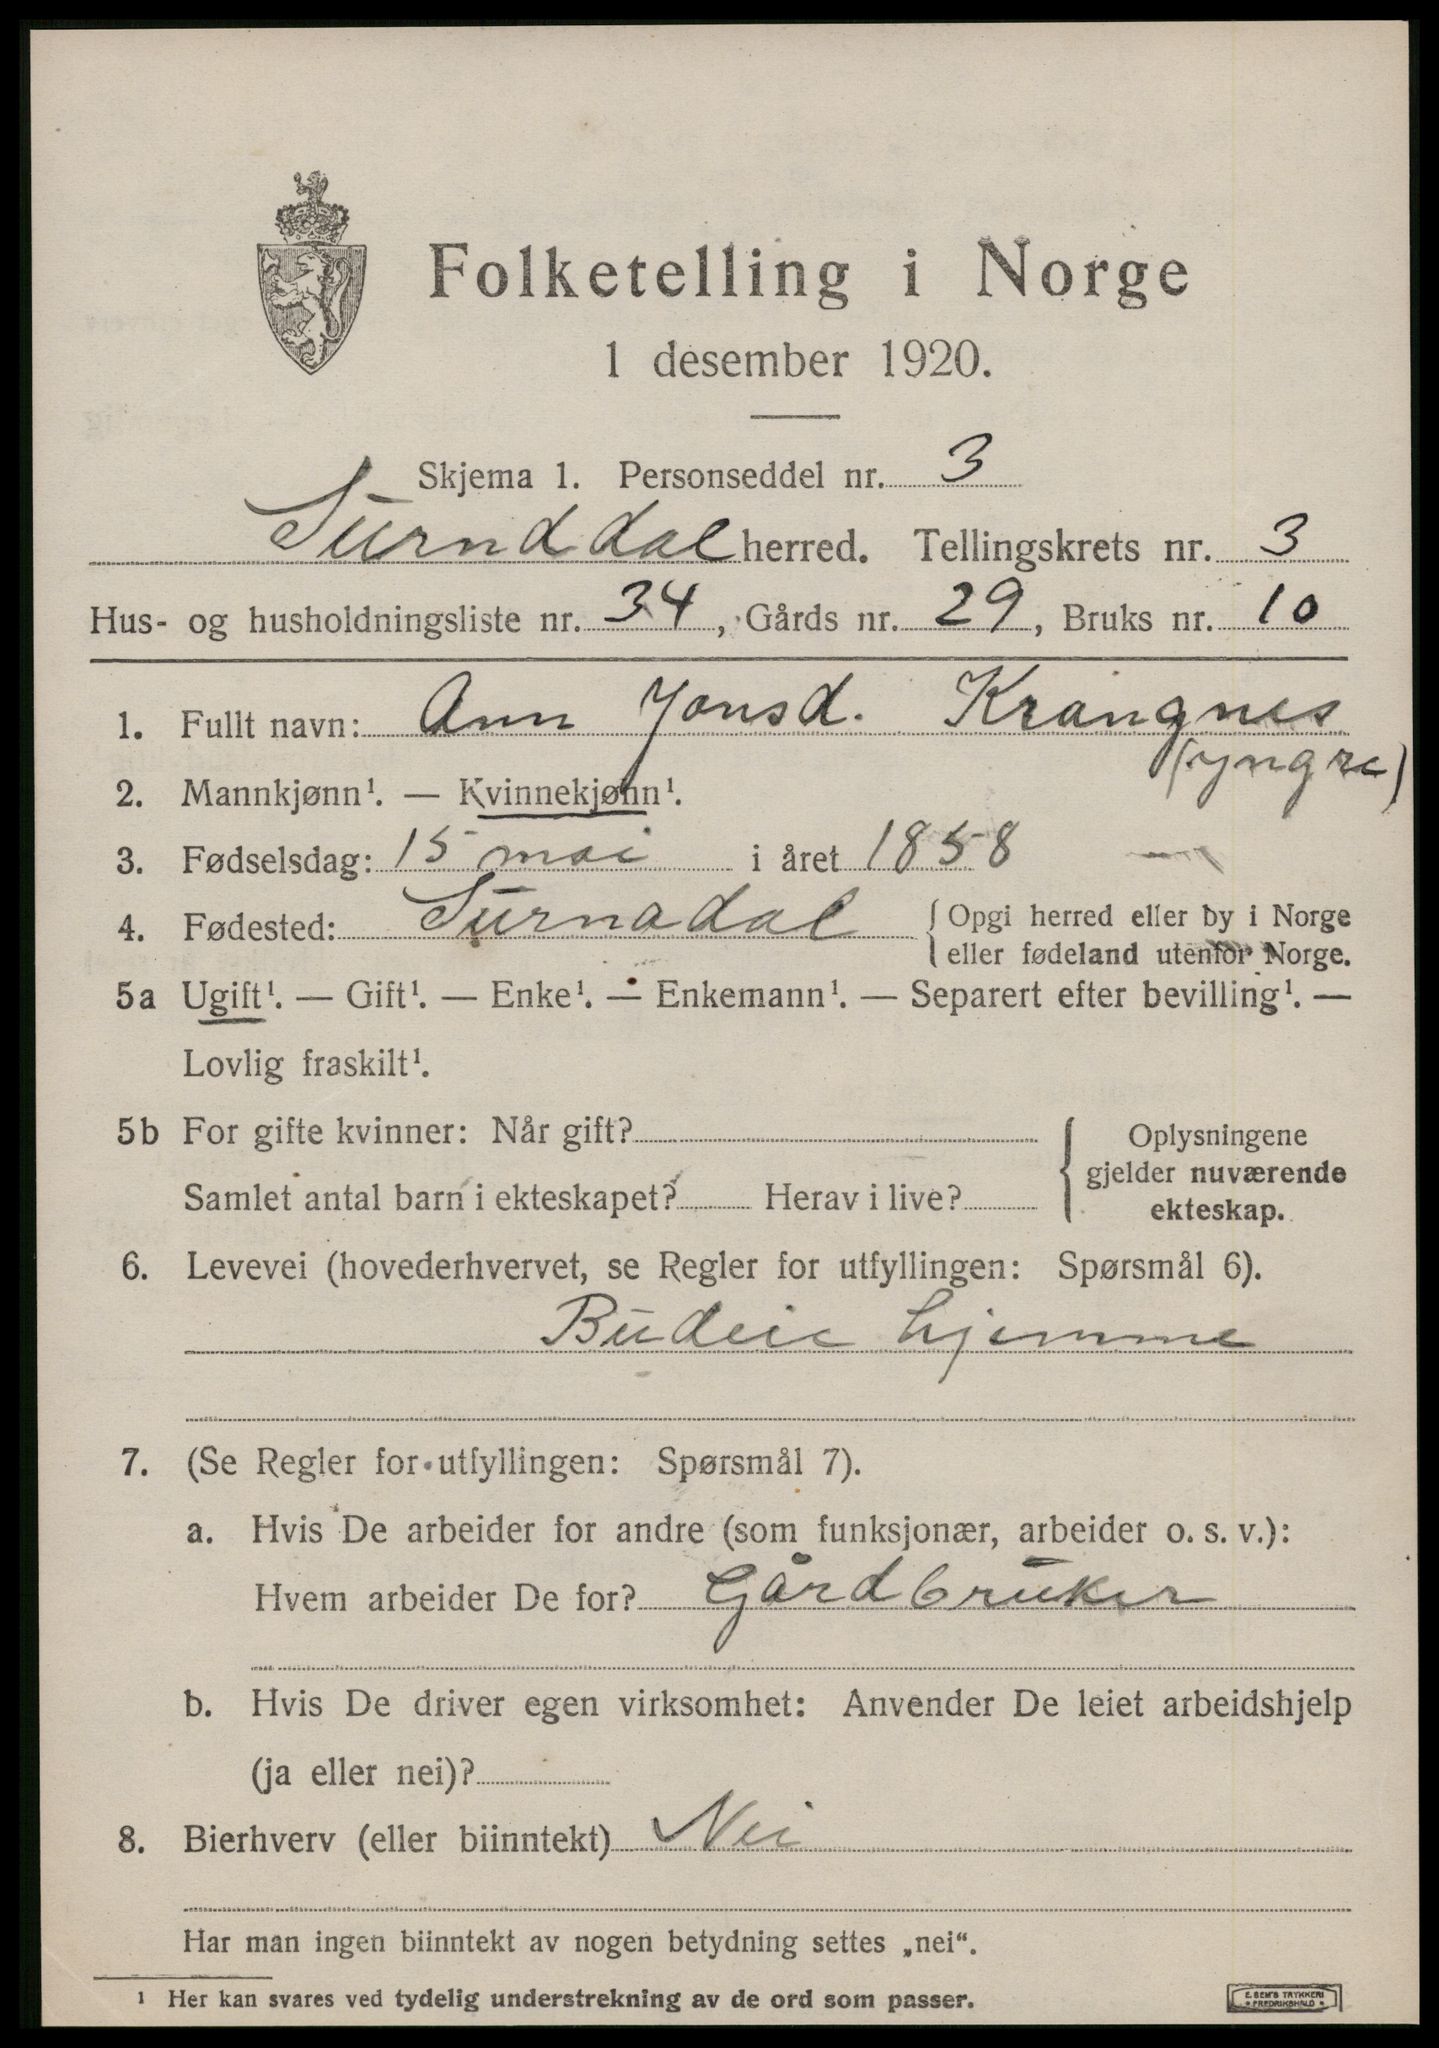 Folketelling i Norge
1 desember 1920.
Skjema 1. Personseddel nr. 3
Surnddal herred. Tellingskrets nr. 3
Hus- og husholdningsliste nr. 34, Gårds nr. 29, Bruks nr. 10
1. Fullt navn: Ann Jonsd. Krangnes
(yngre)
2. Mannkjønn¹. — Kvinnekjønn¹.
3. Fødselsdag: 15 mai i året 1858
4. Fødested: Surnadal { Opgi herred eller by i Norge
eller fødeland utenfor Norge.
5a Ugift¹. — Gift¹. — Enke¹. — Enkemann¹. — Separert efter bevilling¹. —
Lovlig fraskilt¹.
5b For gifte kvinner: Når gift? { Oplysningene
gjelder nuværende
Samlet antal barn i ekteskapet? Herav i live?
ekteskap.
6. Levevei (hovederhvervet, se Regler for utfyllingen: Spørsmål 6).
Budeie hjemme
7. (Se Regler for utfyllingen: Spørsmål 7).
a. Hvis De arbeider for andre (som funksjonær, arbeider o. s. v.):
Hvem arbeider De for? Gårdbruker
b. Hvis De driver egen virksomhet: Anvender De leiet arbeidshjelp
(ja eller nei)?
8. Bierhverv (eller biinntekt) Nei
Har man ingen biinntekt av nogen betydning settes „nei“.
¹ Her kan svares ved tydelig understrekning av de ord som passer.
E. SEM'S TRYKKERI
• FREDRIKSHALD •